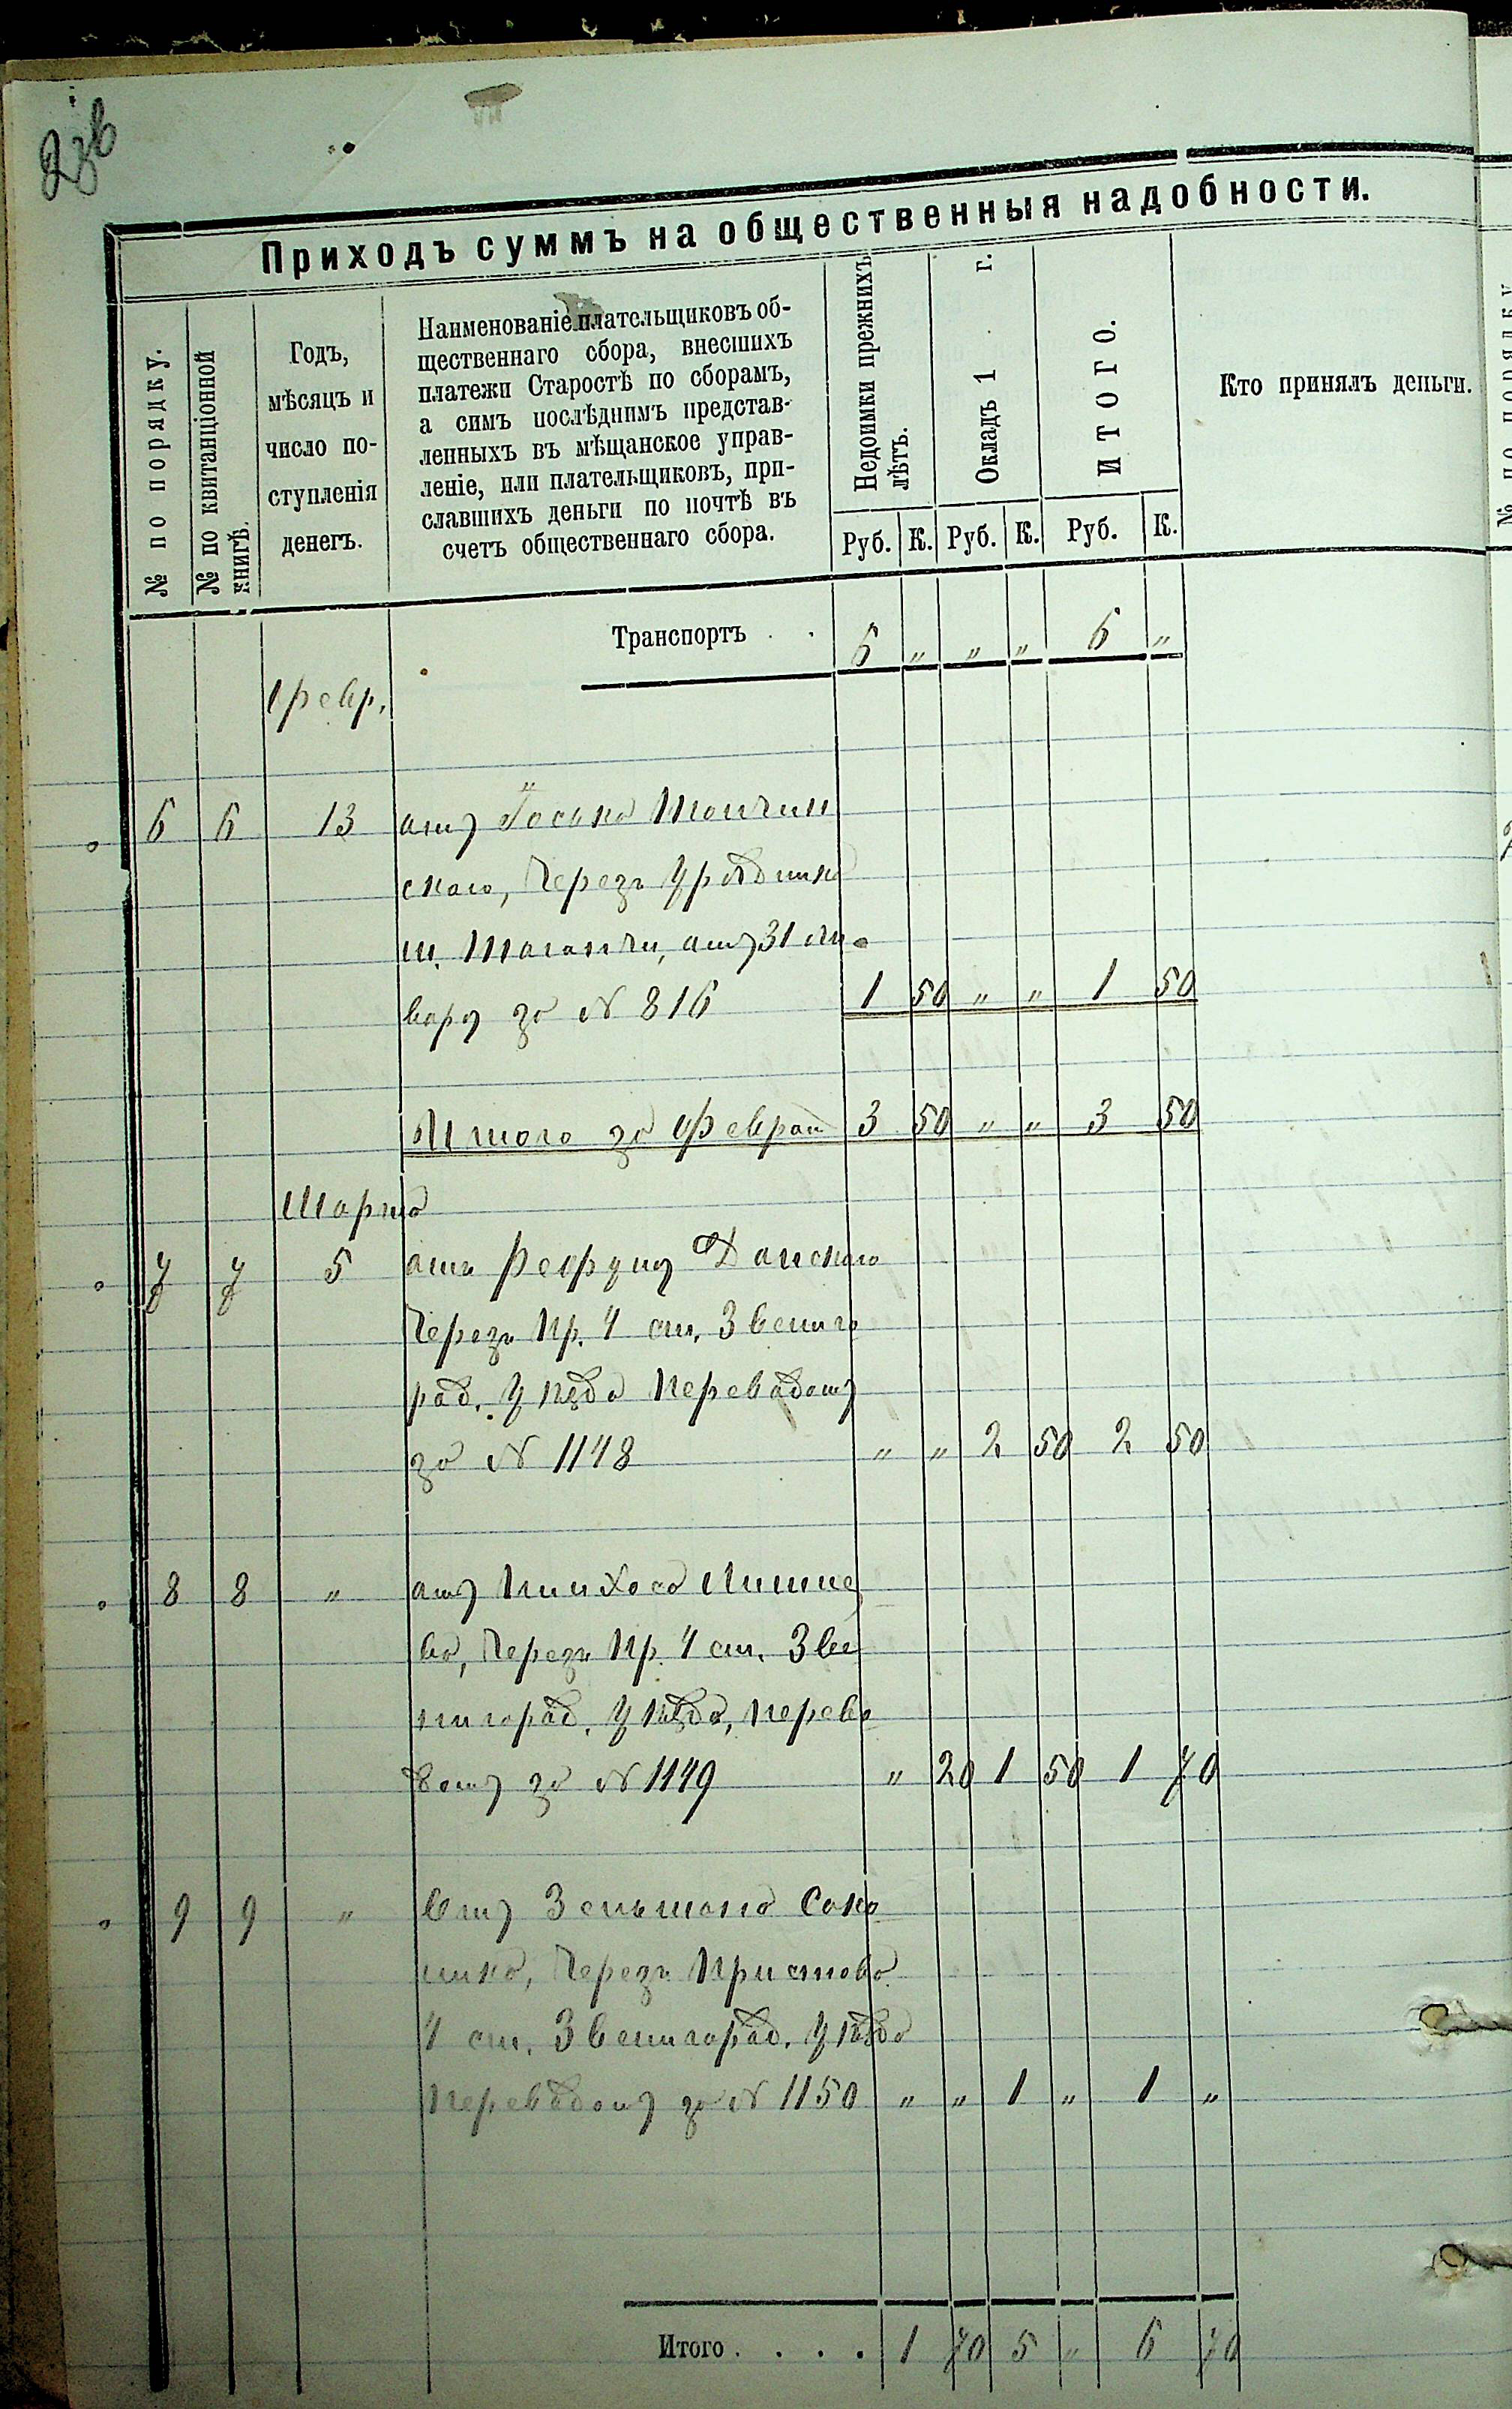 Приходъ суммъ на общественныя надобности.
№ по порядку.
№ по квитанціонной книгѣ.
Годъ,
мѣсяцъ и
число по-
ступленія
денегъ.
Наименованіе плательщиковъ об-
щественнаго сбора, внесшихъ
платежи Старостѣ по сборамъ,
а симъ послѣднимъ представ-
ленныхъ въ мѣщанское управ-
леніе, или плательщиковъ, при-
славшихъ деньги по почтѣ въ
счетъ общественнаго сбора.
Недоимки прежнихъ
лѣтъ.
Окладъ 1 г.
ИТОГО.
Кто принялъ деньги.
Руб. К. Руб. К. Руб. К.
Транспортъ . . 6 „ „ „ 6 „
Февр.
6 6 13 отъ Іоська
скаго, Черезъ Урядника
м. Таганчи, отъ 31 Ян
варя за № 816 1 50 „ „ 1 50
Итого за Феврал 3 50 „ „ 3 50
Марта
7 7 5 отъ Донского
Черезъ Пр. 4 ст. Звениго
род. уѣзда Переводомъ
за № 1148 „ „ 2 50 2 50
8 8 „ отъ Пинхоса
ва, Черезъ Пр. 4 ст. Зве
нигород. уѣзда, перево
домъ за № 1149 „ 20 1 50 1 70
9 9 „ Отъ Зельмана
Черезъ Пристава
4 ст. Звенигород. уѣзда
Переводомъ за № 1150 „ „ 1 „ 1 „
Итого . . . . 1 70 5 „ 6 70